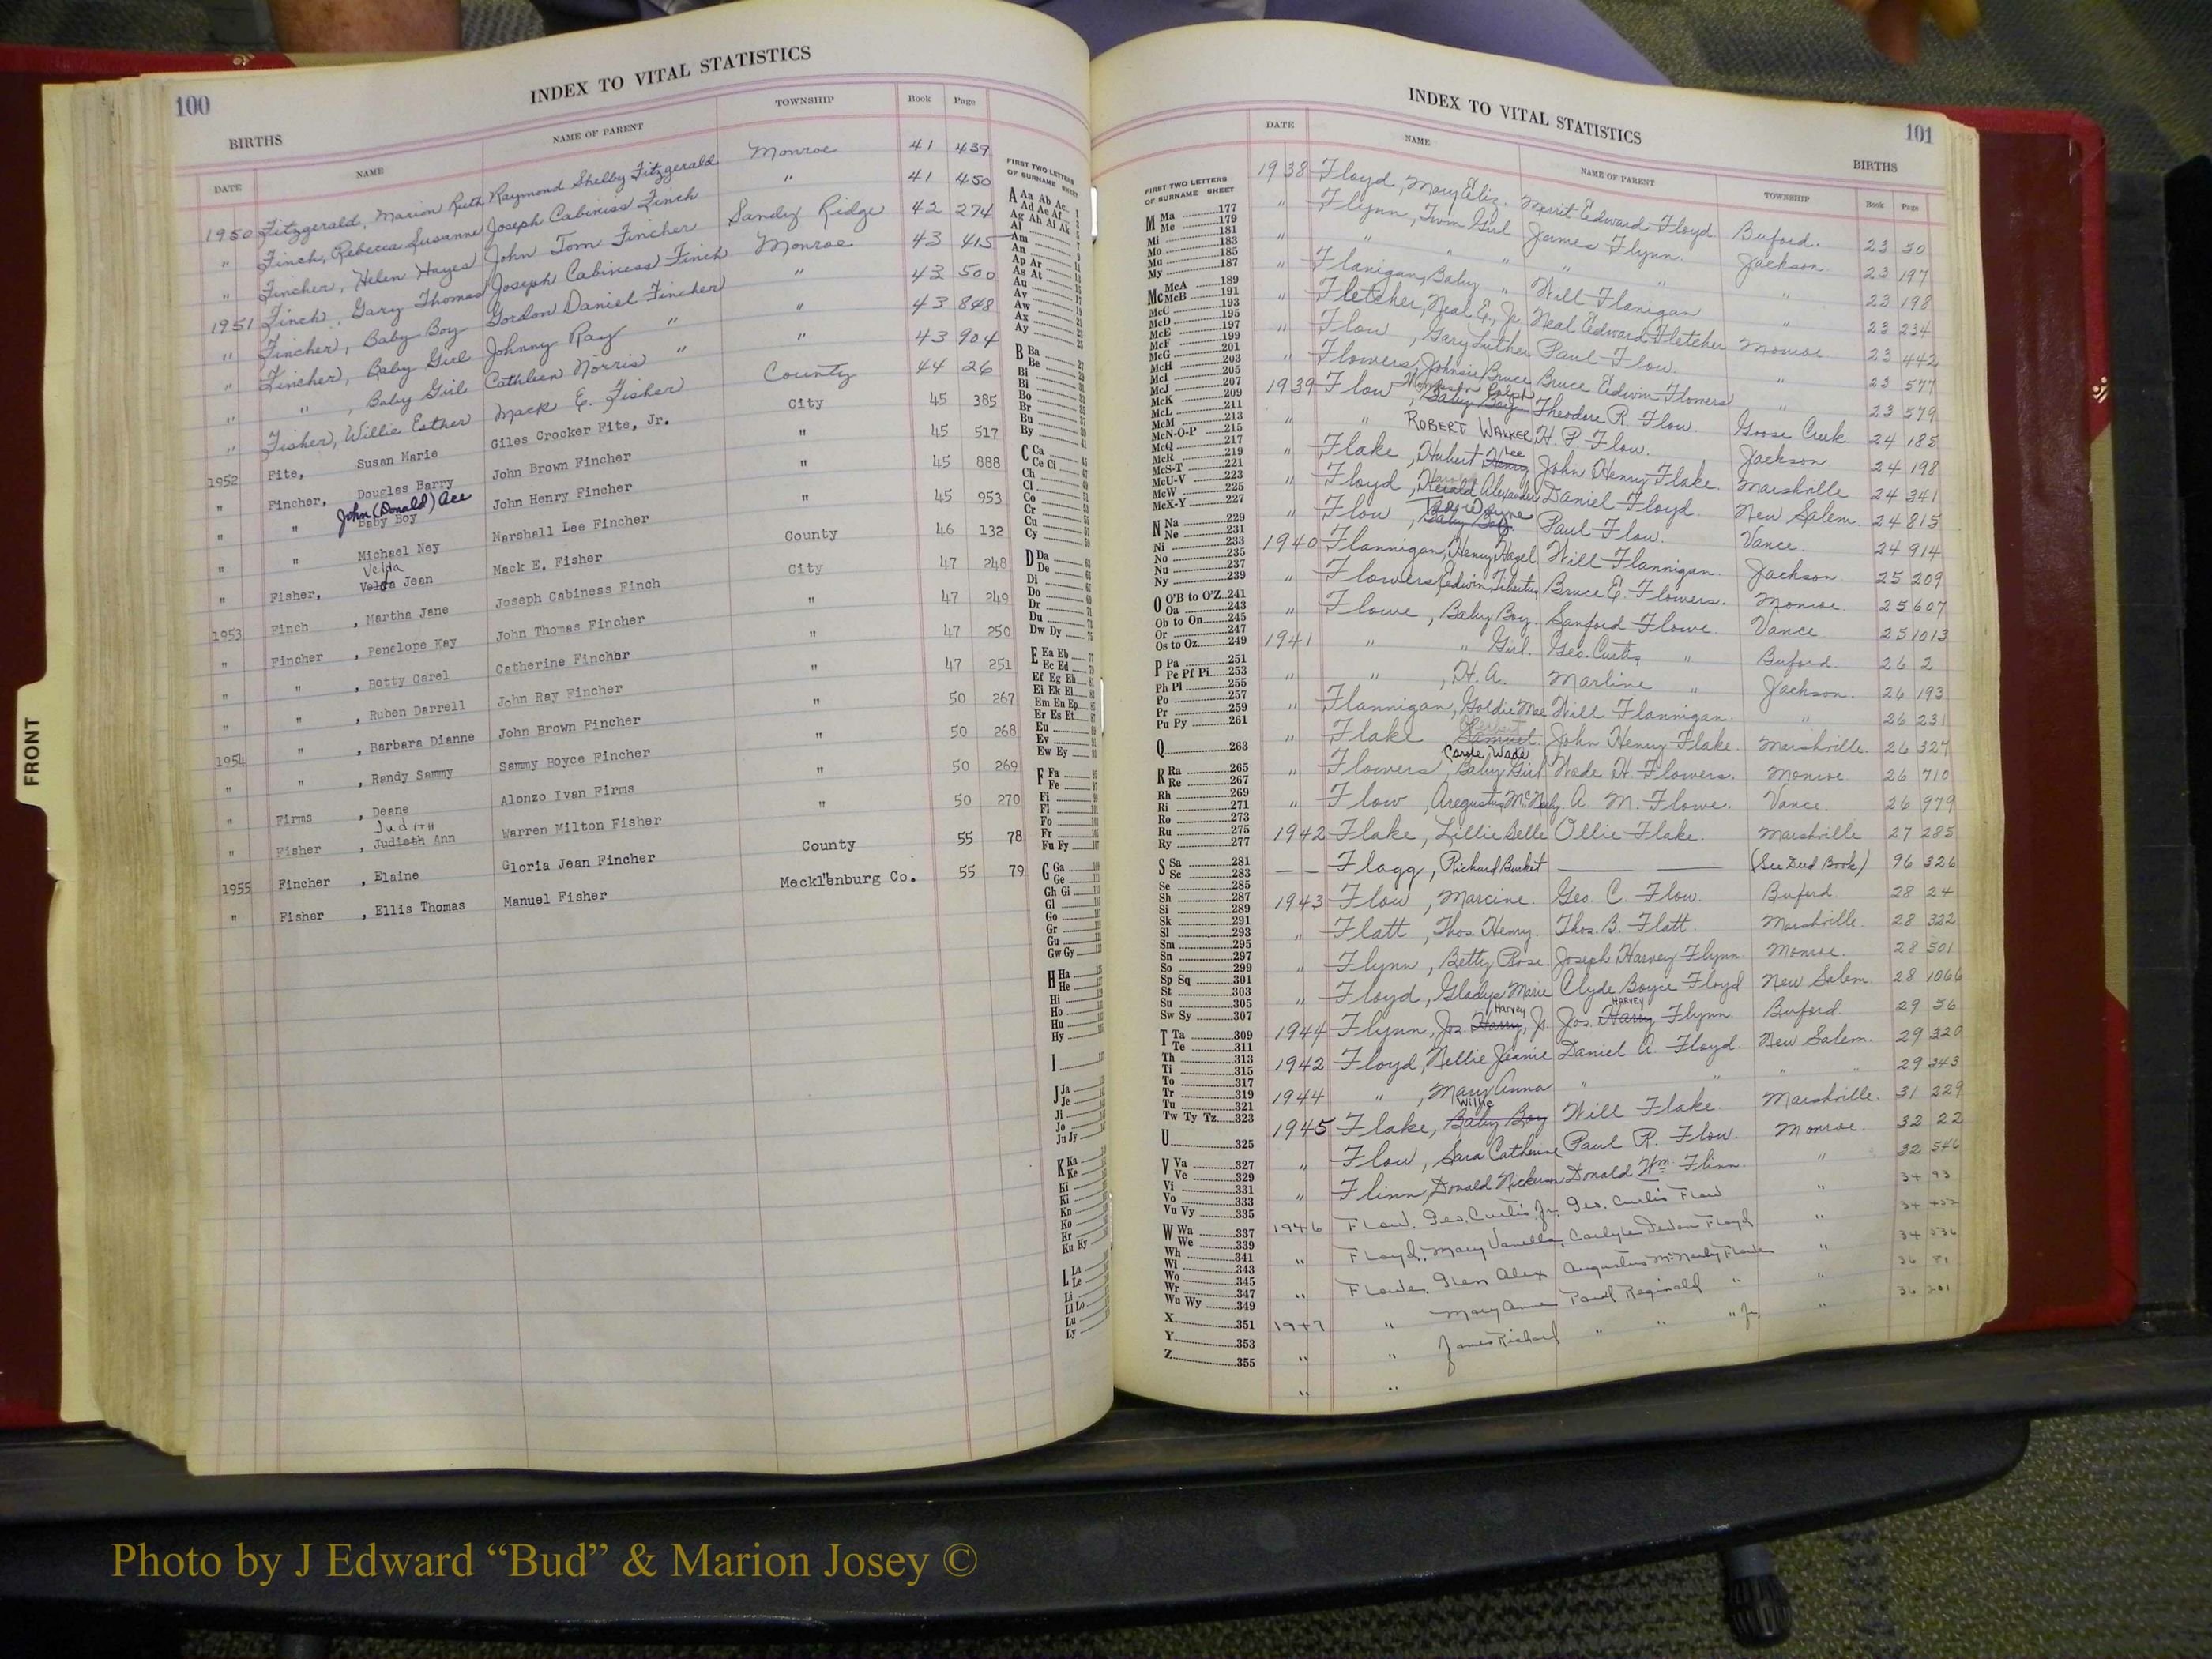 100
INDEX TO VITAL STATISTICS
BIRTHS
DATE NAME NAME OF PARENT TOWNSHIP Book Page
1950 Fitzgerald, Marion Ruth Raymond Shelby Fitzgerald Monroe 41 439
" Finch, Rebecca Susanne Joseph Cabiness Finch " 41 450
" Fincher, Helen Hayes John Tom Fincher Sandy Ridge 42 274
1951 Finch, Gary Thomas Joseph Cabiness Finch Monroe 43 415
" Fincher, Baby Boy Gordon Daniel Fincher " 43 500
" Fincher, Baby Girl Johnny Ray " " 43 848
" " , Baby Girl Cathleen Norris " " 43 904
" Fisher, Willie Esther Mack E. Fisher County 44 26
1952 Fite, Susan Marie Giles Crocker Fite, Jr. City 45 385
" Fincher, Douglas Barry John Brown Fincher " 45 517
John (Donald) Ace
" " Baby Boy John Henry Fincher " 45 888
" " Michael Ney Marshall Lee Fincher " 45 953
Velda
" Fisher, Jean Mack E. Fisher County 46 132
1953 Finch , Martha Jane Joseph Cabiness Finch City 47 248
" Fincher , Penelope Kay John Thomas Fincher " 47 249
" " , Betty Carel Catherine Fincher " 47 250
" " , Ruben Darrell John Ray Fincher " 47 251
1954 " , Barbara Dianne John Brown Fincher " 50 267
" " , Randy Sammy Sammy Boyce Fincher " 50 268
" Firms , Deane Alonzo Ivan Firms " 50 269
Judith
" Fisher , Judieth Ann Warren Milton Fisher " 50 270
1955 Fincher , Elaine Gloria Jean Fincher County 55 78
" Fisher , Ellis Thomas Manuel Fisher Mecklenburg Co. 55 79
FRONT
FIRST TWO LETTERS
OF SURNAME SHEET
A Aa Ab Ac
Ad Ae Af
Ag Ah Ai Ak
Al
Am
An
Ap Ar
As At
Au
Av
Aw
Ax
Ay
B Ba
Be
Bi
Bl
Bo
Br
Bu
By
C Ca
Ce Ci
Ch
Cl
Co
Cr
Cu
Cy
D Da
De
Di
Do
Dr
Du
Dw Dy
E Ea Eb
Ec Ed
Ef Eg Eh
Ei Ek El
Em En Ep
Er Es Et
Eu
Ev
Ew Ey
F Fa
Fe
Fi
Fl
Fo
Fr
Fu Fy
G Ga
Ge
Gh Gi
Gl
Go
Gr
Gu
Gw Gy
H Ha
He
Hi
Ho
Hu
Hy
I
J Ja
Je
Ji
Jo
Ju Jy
K Ka
Ke
Ki
Kn
Ko
Kr
Ku Ky
L La
Le
Li
Ll Lo
Lu
Ly
INDEX TO VITAL STATISTICS
101
BIRTHS
DATE NAME NAME OF PARENT TOWNSHIP Book Page
FIRST TWO LETTERS
OF SURNAME SHEET
M Ma 177
Me 179
Mi 181
Mo 183
Mu 185
My 187
Mc McA 189
McB 191
McC 193
McD 195
McE 197
McF 199
McG 201
McH 203
McI 205
McJ 207
McK 209
McL 211
McM 213
McN-O-P 215
McQ 217
McR 219
McS-T 221
McU-V 223
McW 225
McX-Y 227
N Na 229
Ne 231
Ni 233
No 235
Nu 237
Ny 239
O O'B to O'Z 241
Oa 243
Ob to On 245
Or 247
Os to Oz 249
P Pa 251
Pe Pf Pi 253
Ph Pl 255
Po 257
Pr 259
Pu Py 261
Q 263
R Ra 265
Re 267
Rh 269
Ri 271
Ro 273
Ru 275
Ry 277
S Sa 281
Sc 283
Se 285
Sh 287
Si 289
Sk 291
Sl 293
Sm 295
Sn 297
So 299
Sp Sq 301
St 303
Su 305
Sw Sy 307
T Ta 309
Te 311
Th 313
Ti 315
To 317
Tr 319
Tu 321
Tw Ty Tz 323
U 325
V Va 327
Ve 329
Vi 331
Vo 333
Vu Vy 335
W Wa 337
We 339
Wh 341
Wi 343
Wo 345
Wr 347
Wu Wy 349
X 351
Y 353
Z 355
1938 Floyd, Mary Eliz. Merrit Edward Floyd Buford. 23 50
" Flynn, Twin Girl James Flynn. Jackson. 23 197
" " " " " " " 23 198
" Flanigan, Baby " Will Flanigan " 23 234
" Fletcher, Neal E., Jr. Neal Edward Fletcher Monroe 23 442
" Flow, Gary Luther Paul Flow. " 23 577
" Flowers, Johnsie Bruce Bruce Edwin Flowers " 23 579
1939 Flow, Baby Boy Theodore R. Flow. Goose Creek 24 185
" " ROBERT WALKER H. P. Flow. Jackson 24 198
" Flake, Hubert Henry Lee John Henry Flake. Marshville 24 341
" Floyd, Harold Alexander Daniel Floyd. New Salem. 24 815
" Flow, Baby Boy Paul Flow. Vance. 24 914
1940 Flannigan, Henry Hazel Will Flannigan. Jackson 25 209
" Flowers, Edwin Bruce E. Flowers. Monroe. 25 607
" Flowe, Baby Boy Sanford Flowe. Vance 25 1013
1941 " " Girl. Geo. Curtis " Buford. 26 2
" " , H. A. Marline " Jackson. 26 193
" Flannigan, Goldie Mae Will Flannigan. " 26 231
" Flake, Samuel John Henry Flake. Marshville. 26 327
Carole Wade
" Flowers, Baby Girl Wade H. Flowers. Monroe 26 710
" Flow, McNeely A. M. Flowe. Vance. 26 979
1942 Flake, Lillie Belle Ollie Flake. Marshville 27 285
— — Flagg, Richard Burket — (See Deed Book) 96 326
1943 Flow, Marcine. Geo. C. Flow. Buford. 28 24
" Flatt, Thos. Henry. Thos. B. Flatt. Marshville. 28 322
" Flynn, Betty Rose. Joseph Harvey Flynn. Monroe. 28 501
" Floyd, Gladys Marie Clyde Boyce Floyd New Salem. 28 1066
Harvey HARVEY
1944 Flynn, Jos. Harry, Jr. Jos. Harry Flynn. Buford. 29 56
1942 Floyd, Nellie Jeanie Daniel A. Floyd. New Salem. 29 320
1944 " , Mary Anna " " " " 29 343
Willie
1945 Flake, Baby Boy Will Flake. Marshville. 31 229
" Flow, Sara Catherine Paul R. Flow. Monroe. 32 22
" Flinn, Donald Nickerson Donald Wm. Flinn. " 32 546
1946 Flow, Geo. Curtis Jr. Geo. Curtis Flow " 34 93
" Floyd, Mary Vanella, Carlyle Floyd " 34
" Flowe, Glen Alex Augustus McNeely Flowe " 34 536
1947 " Mary Anne Paul Reginald " " 36
" " James Richard " " " Jr. " 36 201
" "
Photo by J Edward “Bud” & Marion Josey ©